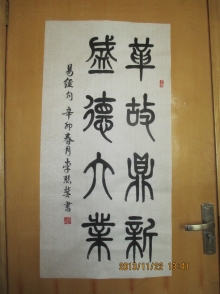 革故鼎新
盛德大業
易經句 辛卯春月李
書
2013/11/22